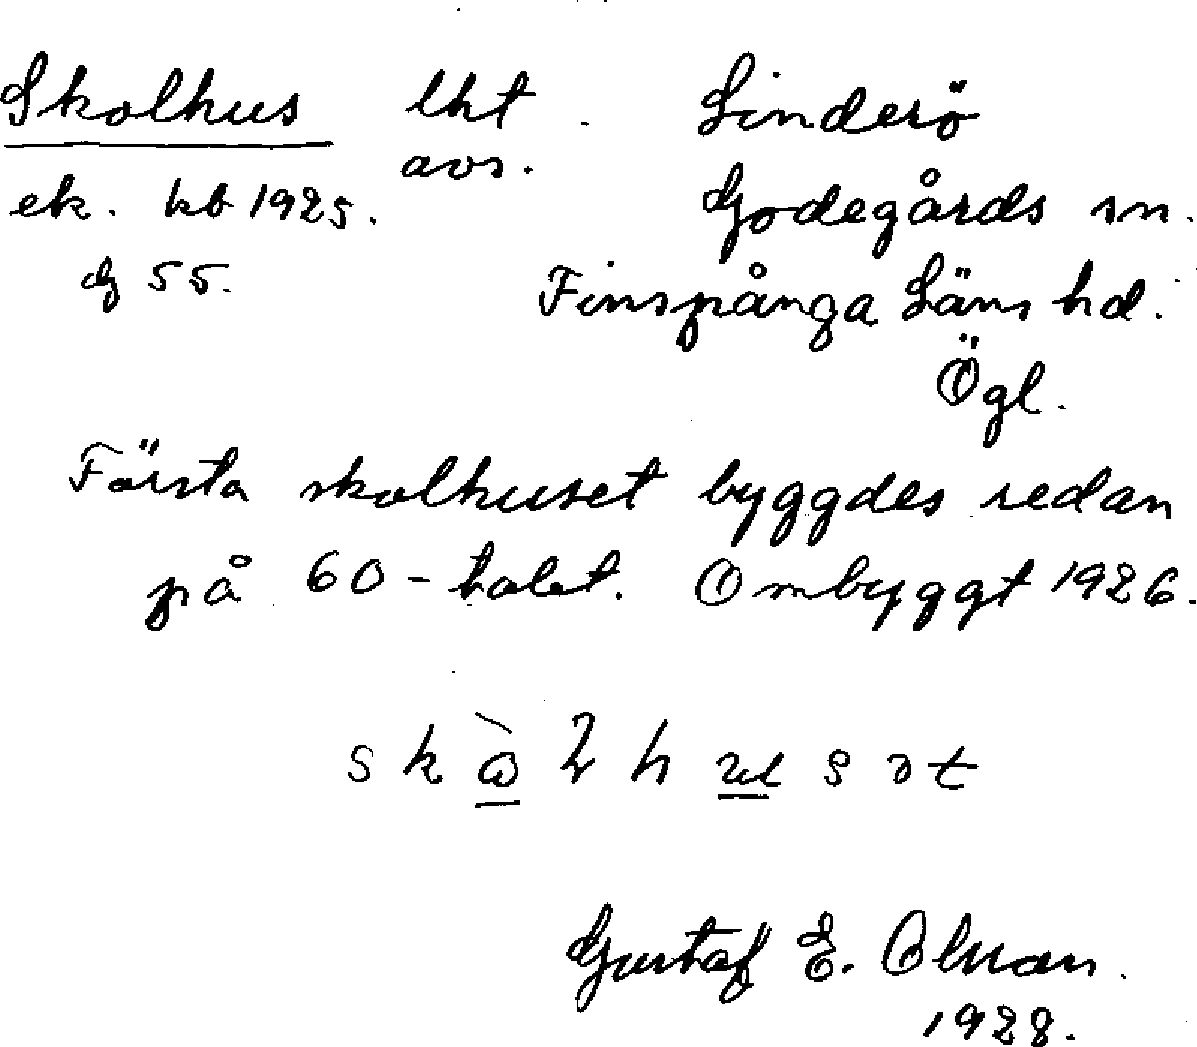 Skolhus lht. Linderö
avs.
ek. kb 1925. Godegårds sn.
55. Finspånga Läns hd.
Ögl.
Första skolhuset byggdes redan
på 60-talet. Ombyggt 1926.
Gustaf E. Olman.
1928.